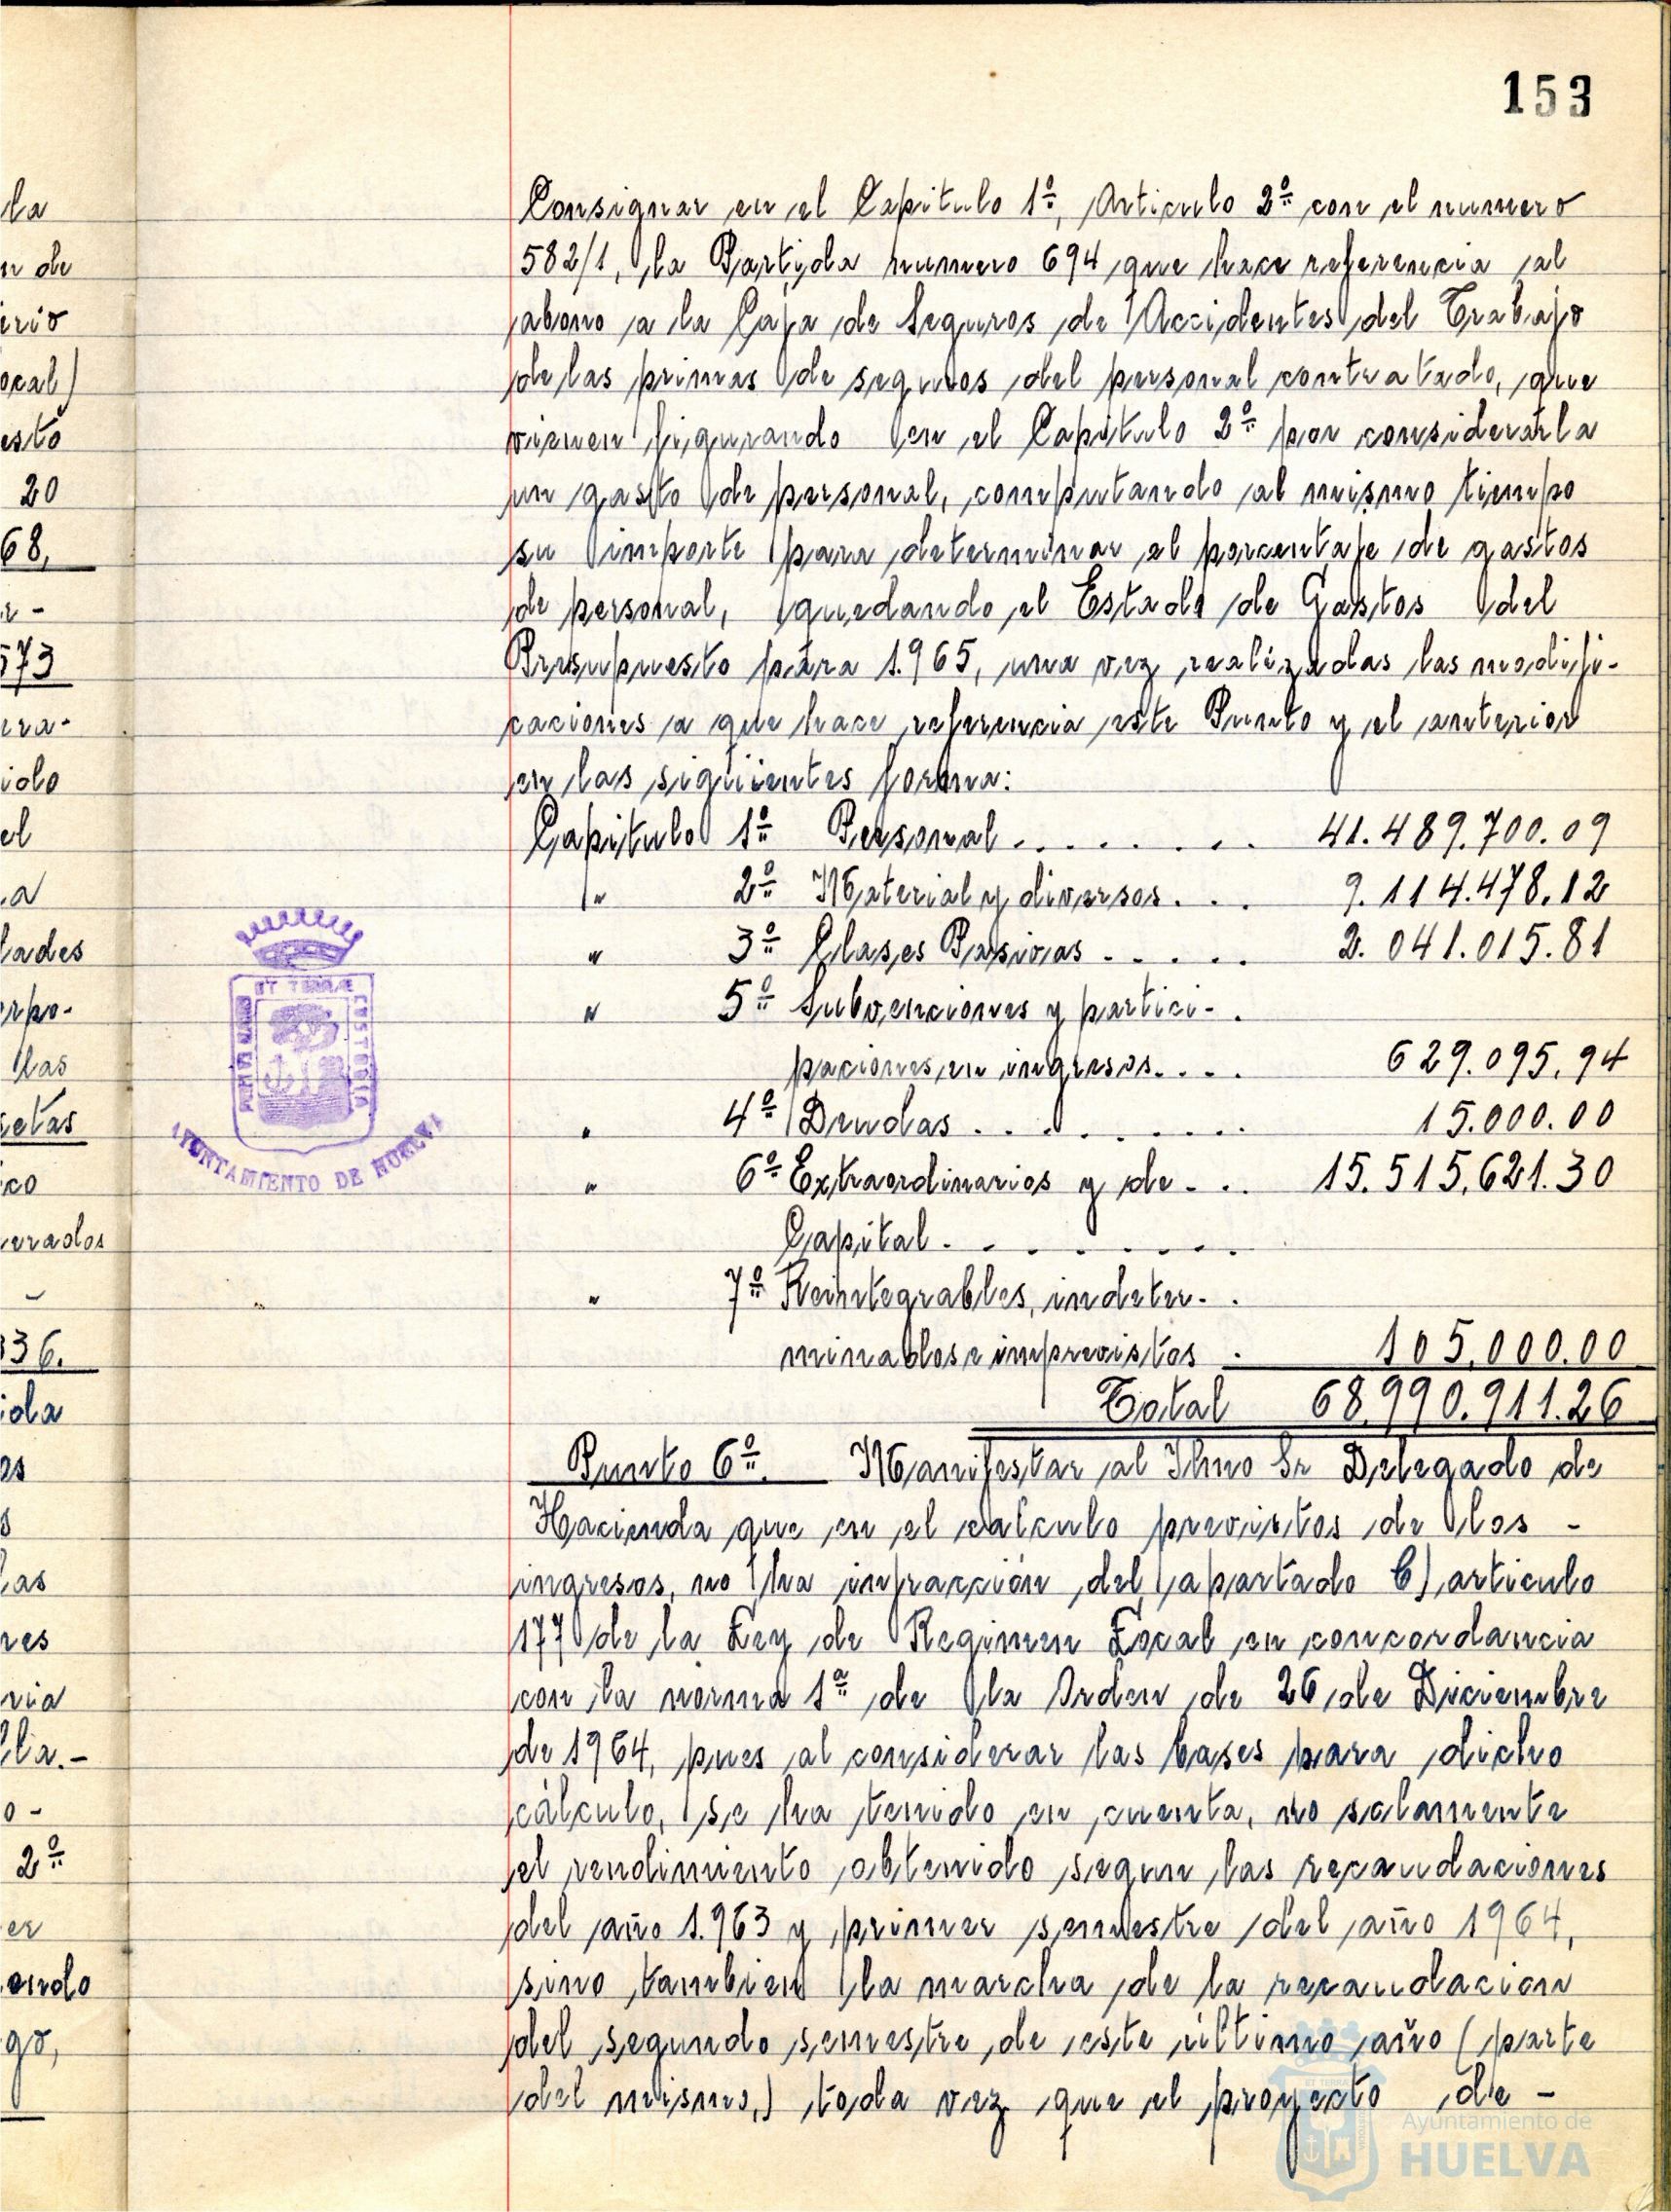 153
la
n de
erio
ocal)
esto
20
68,
r -
573
era-
ido
el
a
lades
erpo-
las
etas
ico
erados
-
336.
ida
os
s
las
res
ria
lla.-
o -
2º
er
endo
go,
Consignar en el Capitulo 1º, Articulo 2º con el numero
582/1, la Partida numero 694 que hace referencia al
abono a la Caja de Seguros de Accidentes del Trabajo
de las primas de seguros del personal contratado, que
vienen figurando en el Capitulo 2º por considerarla
un gasto de personal, computando al mismo tiempo
su importe para determinar el porcentaje de gastos
de personal, quedando el Estado de Gastos del
Presupuesto para 1.965, una vez realizadas las modifi-
caciones a que hace referencia este Punto y el anterior
en las siguientes forma:
Capitulo 1º Personal . . . . . . . 41.489.700.09
" 2º Material y diversos. . . 9.114.478.12
" 3º Clases Pasivas . . . . . 2.041.015.81
" 5º Subvenciones y partici- .
paciones en ingresos. . . . 629.095.94
" 4º Deudas . . . . . . . . . 15.000.00
" 6º Extraordinarios y de - . . 15.515.621.30
Capital. . . . . . . . .
" 7º Reintegrables, indeter- .
minados e imprevistos . 105.000.00
Total 68.990.911.26
Punto 6º. Manifestar al Ilmo Sr Delegado de
Hacienda que en el calculo previstos de los -
ingresos, no ha infracción del apartado C) articulo
177 de la Ley de Regimen Local en concordancia
con la norma 1ª de la Orden de 26 de Diciembre
de 1964, pues al considerar las bases para dicho
cálculo, se ha tenido en cuenta, no solamente
el rendimiento obtenido segun las recaudaciones
del año 1.963 y primer semestre del año 1964,
sino tambien la marcha de la recaudacion
del segundo semestre de este último año (parte
del mismo,) toda vez que el proyecto de -
ET TERRAE
CUSTODIA
AYUNTAMIENTO DE HUELVA
Ayuntamiento de
HUELVA